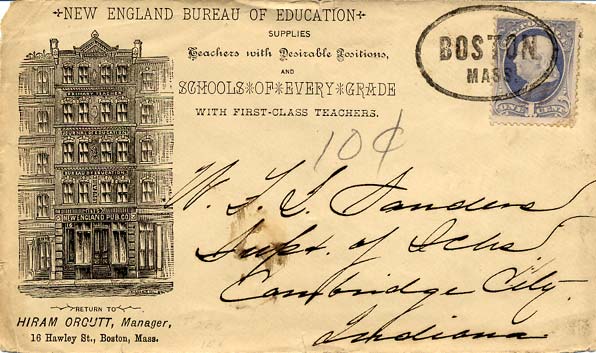 NEW ENGLAND BUREAU OF EDUCATION
SUPPLIES
Teachers with Desirable Positions,
AND
SCHOOLS*OF*EVERY*GRADE
WITH FIRST-CLASS TEACHERS.
BOSTON,
MASS.
ONE
10¢
BUREAU OF EDUCATION
NEW ENGLAND PUB. CO.
W. F. L. Sanders
Supt. of Schs
Cambridge City.
Indiana
RETURN TO
HIRAM ORCUTT, Manager,
16 Hawley St., Boston, Mass.